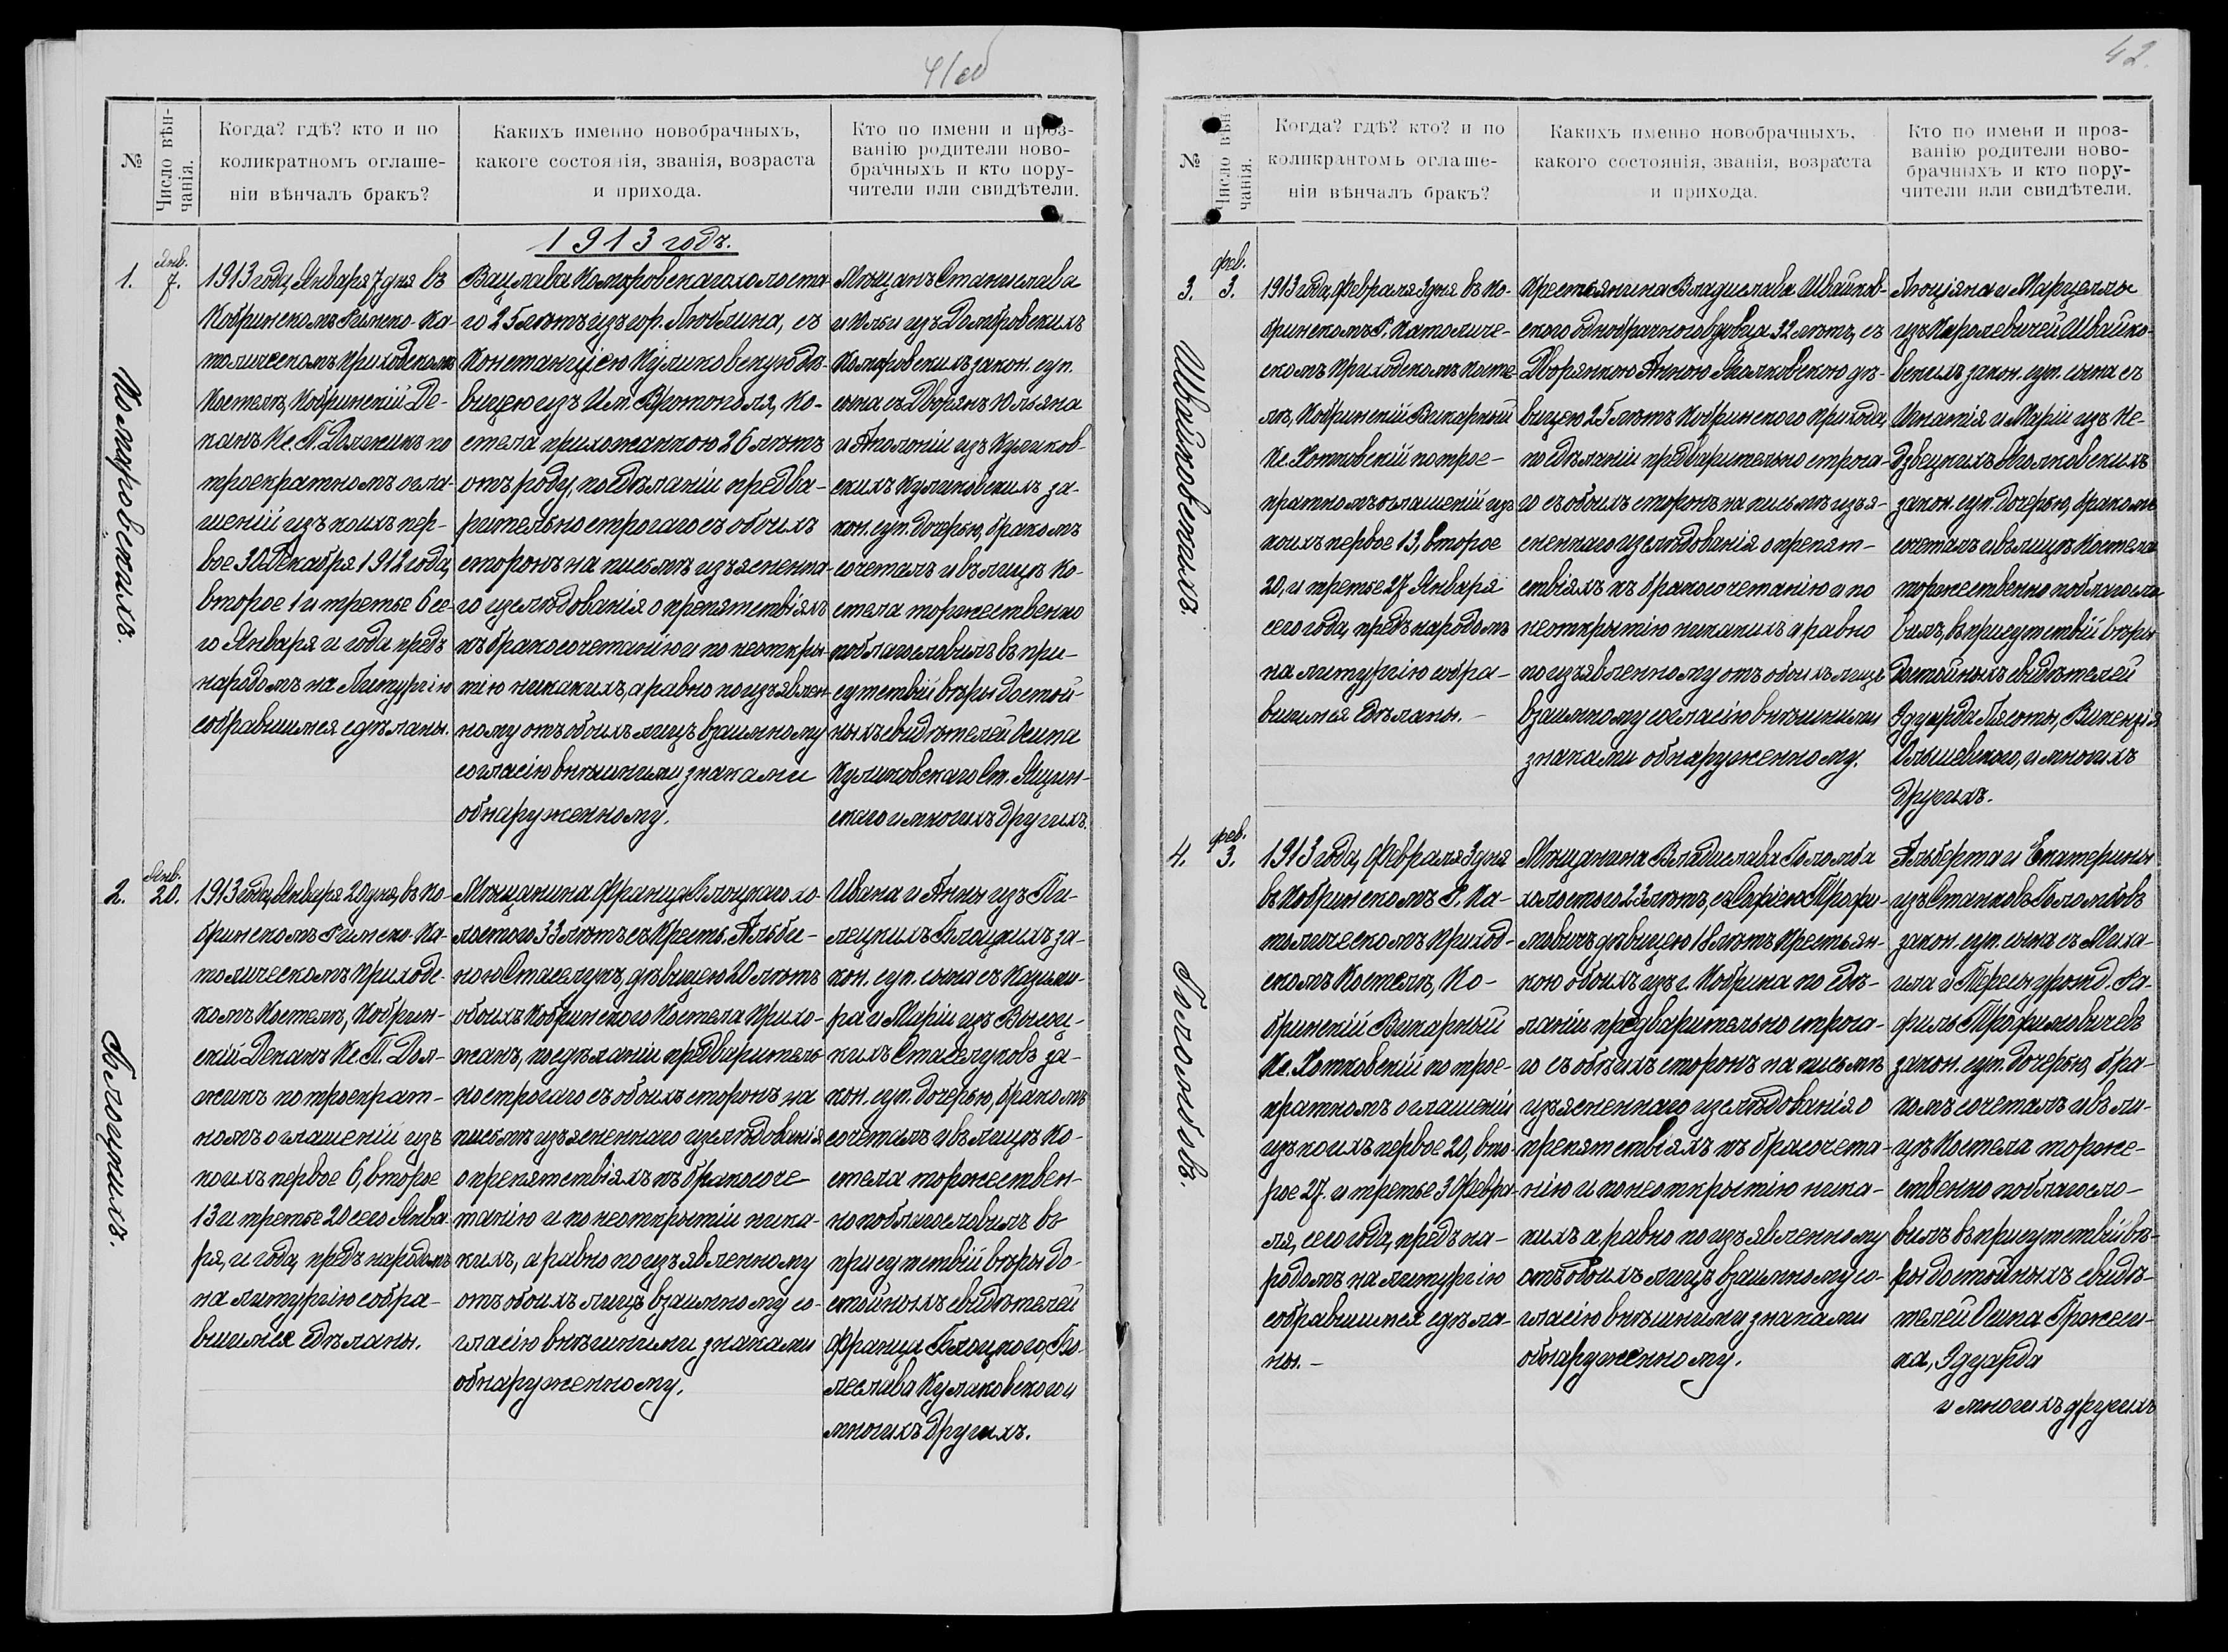 41 об
№
Число вѣн-
чанія.
Когда? гдѣ? кто и по
коликратномъ оглаше-
ніи вѣнчалъ бракъ?
Какихъ именно новобрачныхъ,
какого состоянія, званія, возраста
и прихода.
Кто по имени и проз-
ванію родители ново-
брачныхъ и кто пору-
чители или свидѣтели.
1913 годъ.
1.
Янв.
7.
Коморовскихъ.
1913 года, Января 7 дня въ
Кобринскомъ Римско-Ка-
толическомъ Приходскомъ
Костелѣ, Кобринскій Де-
канъ Кс. П. Долженикъ по
троекратномъ огла-
шеній изъ коихъ пер-
вое 30 Декабря 1912 года,
второе 1 и третье 6 се-
го Января и года предъ
народомъ на Литургію
собравшимся сдѣланы.
Вацлава Коморовскаго холоста-
го 25 лѣтъ изъ гор. Люблина, съ
Констанціею Куликовскую дѣ-
вицею изъ Им. Протополя, Ко-
стела прихожанкою 26 лѣтъ
отъ роду, по сдѣланіи предва-
рительно строгаго съ обоихъ
сторонъ на письмѣ изъясненна-
го изслѣдованія о препятствіяхъ
къ бракосочетанію и по неоткры-
тію никакихъ, а равно по изъявлен-
ному отъ обоихъ лицъ взаимному
согласію внѣшними знаками
обнаруженному.
Мѣщанъ Станислава
и Юльи изъ Домбровскихъ
Коморовскихъ закон. суп.
сына съ Дворянъ Юльяна
и Аполоніи изъ Куликов-
скихъ Куликовскихъ за-
кон. суп. дочерью, бракомъ
сочеталъ и въ лицѣ Ко-
стела торжественно
поблагословилъ въ при-
сутствіи вѣры достой-
ныхъ свидѣтелей Осипа
Куликовскаго Ст. Яцын-
скаго и многихъ другихъ.
2.
Янв.
20.
Блоцкихъ.
1913 года, Января 20 дня, въ Ко-
бринскомъ Римско-Ка-
толическомъ Приходс-
комъ Костелѣ, Кобрин-
скій Деканъ Кс. П. Дол-
женикъ по троекрат-
номъ оглашеній изъ
коихъ первое 6, второе
13 и третье 20 сего Янва-
ря, и года, предъ народомъ
на литургію собра-
вшимся сдѣланы.
Мѣщанина Франца Блоцкаго хо-
лостого 33 лѣтъ съ Крест. Альби-
ною Стаселукъ, дѣвицею 20 лѣтъ
обоихъ Кобринского Костела Прихо-
жанъ, по сдѣланіи предваритель-
но строгаго съ обоихъ сторонъ на
письмѣ изъясненнаго изслѣдованія
о препятствіяхъ къ бракосоче
танію и по неоткрытіи ника-
кихъ, а равно по изъявленному
отъ обоихъ лицъ взаимному со-
гласію внѣшними знаками
обнаруженному.
Ивана и Анны изъ Пи-
лецкихъ Блоцкихъ за-
кон. суп. сына съ Казими-
ра и Маріи изъ Высоц-
кихъ Стаселуковъ за-
кон. суп. дочерью, бракомъ
сочеталъ и въ лицѣ Ко-
стела торжествен-
но поблагословилъ въ
присутствіи вѣры до-
стойныхъ свидѣтелей
Франца Блоцкого, Бо-
леслава Куликовского и
многихъ другихъ.
42.
№
Число вѣн
чанія.
Когда? гдѣ? кто? и по
коликрантомъ оглаше-
ніи вѣнчалъ бракъ?
Какихъ именно новобрачныхъ,
какого состоянія, званія, возраста
и прихода.
Кто по имени и проз-
ванію родители ново-
брачныхъ и кто пору-
чители или свидѣтели.
3.
фев.
3.
Швайковскихъ.
1913 года, Февраля 3 дня въ Ко-
бринскомъ Р. Католиче-
скомъ Приходскомъ Косте-
лѣ, Кобринскій Викарный
Кс. Хотковскій по трое-
кратномъ оглашеній изъ
коихъ первое 13, второе
20, и третье 27 Января
сего года, предъ народомъ
на литургію собра-
вшимся сдѣланы.-
Крестьянина Владислава Швайков-
ского однобрачного вдовца 32 лѣтъ, съ
Дворянкою Анною Яколковскою дѣ-
вицею 25 лѣтъ Кобринского Прихода,
по сдѣланіи предварительно строга-
го съ обоихъ сторонъ на письмѣ изъя-
сненнаго изслѣдованія о препят-
ствіяхъ къ бракосочетанію и по
неоткрытію никакихъ а равно
по изъявленному отъ обоихъ лицъ
взаимному согласію внѣшними
знаками обнаруженному.
Люціяна и Марцеллы
изъ Каролевичей Швайко-
вскихъ закон. суп. сына съ
Игнатія и Маріи изъ Не-
дзвецкихъ Яколковскихъ
закон. суп. дочерью, бракомъ
сочеталъ и въ лицѣ Костела
торжественно поблагосло
вилъ, въ присутствіи вѣры
достойныхъ свидѣтелей
Эдуарда Лясоты, Викентія
Ольшевского, и многихъ
другихъ.
4.
фев.
3.
Голомбовъ.
1913 года, Февраля 3 дня
въ Кобринскомъ Р. Ка-
толическомъ Приход-
скомъ Костелѣ, Ко-
бринскій Викарный
Кс. Хотковскій по трое-
кратномъ оглашеній
изъ коихъ первое 20, вто-
рое 27. и третье 3 Февра-
ля, сего года, предъ на-
родомъ на литургію
собравшимся сдѣла-
ны.-
Мѣщанина Владислава Голомба
холостого 23 лѣтъ, съ Софіею Трофи-
мовичъ дѣвицею 18 лѣтъ Крестьян-
кою обоихъ изъ г. Кобрина по сдѣ-
ланіи предварительно строга-
го съ обѣихъ сторонъ на письмѣ
изъясненнаго изслѣдованія о
препятствіяхъ къ брасочета-
нію и по неоткрытію ника-
кихъ а равно по изъявленному
отъ обоихъ лицъ взаимному со-
гласію внѣшними знаками
обнаруженному.
Альберта и Екатерины
изъ Станковъ Голомбовъ
закон. суп. сына съ Миха-
ила и Тересы урожд. Ра-
филь Трофимовичевъ
закон. суп. дочерью, бра-
комъ сочеталъ и въ ли-
цѣ Костела торже-
ственно поблагосло-
вилъ въ присутствіи вѣ-
ры достойныхъ свидѣ-
телей Осипа
Эдуарда
и многихъ другихъ